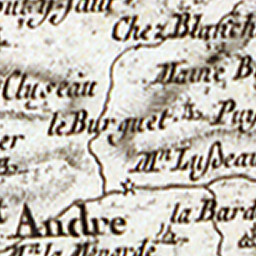 Chez Blanch
Maine B
Cluseau
le Burguet
Puy
er
Mn Lusseau
Andre
la Bard
Mn la Menarde